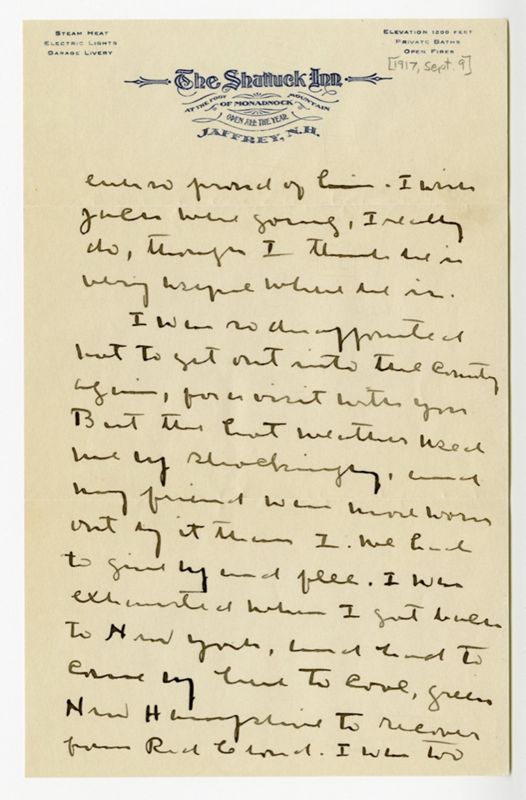 STEAM HEAT
ELECTRIC LIGHTS
GARAGE LIVERY
ELEVATION 1200 FEET
PRIVATE BATHS
OPEN FIRES
[1917, Sept. 9]
The Shattuck Inn
AT THE FOOT OF MONADNOCK MOUNTAIN
OPEN ALL THE YEAR
JAFFREY, N.H.
so proud of him. I wish
Jules were going, I really
do, though I think he is
very useful where he is.
I was so disappointed
not to get out into the County
again, for a visit with you
But the hot weather used
me up shockingly, and
my friend was more worn
out by it than I. We had
to give up and flee. I was
exhausted when I got back
to New York, and had to
come up here to cool, green
New Hampshire to recover
from Red Cloud. I was too